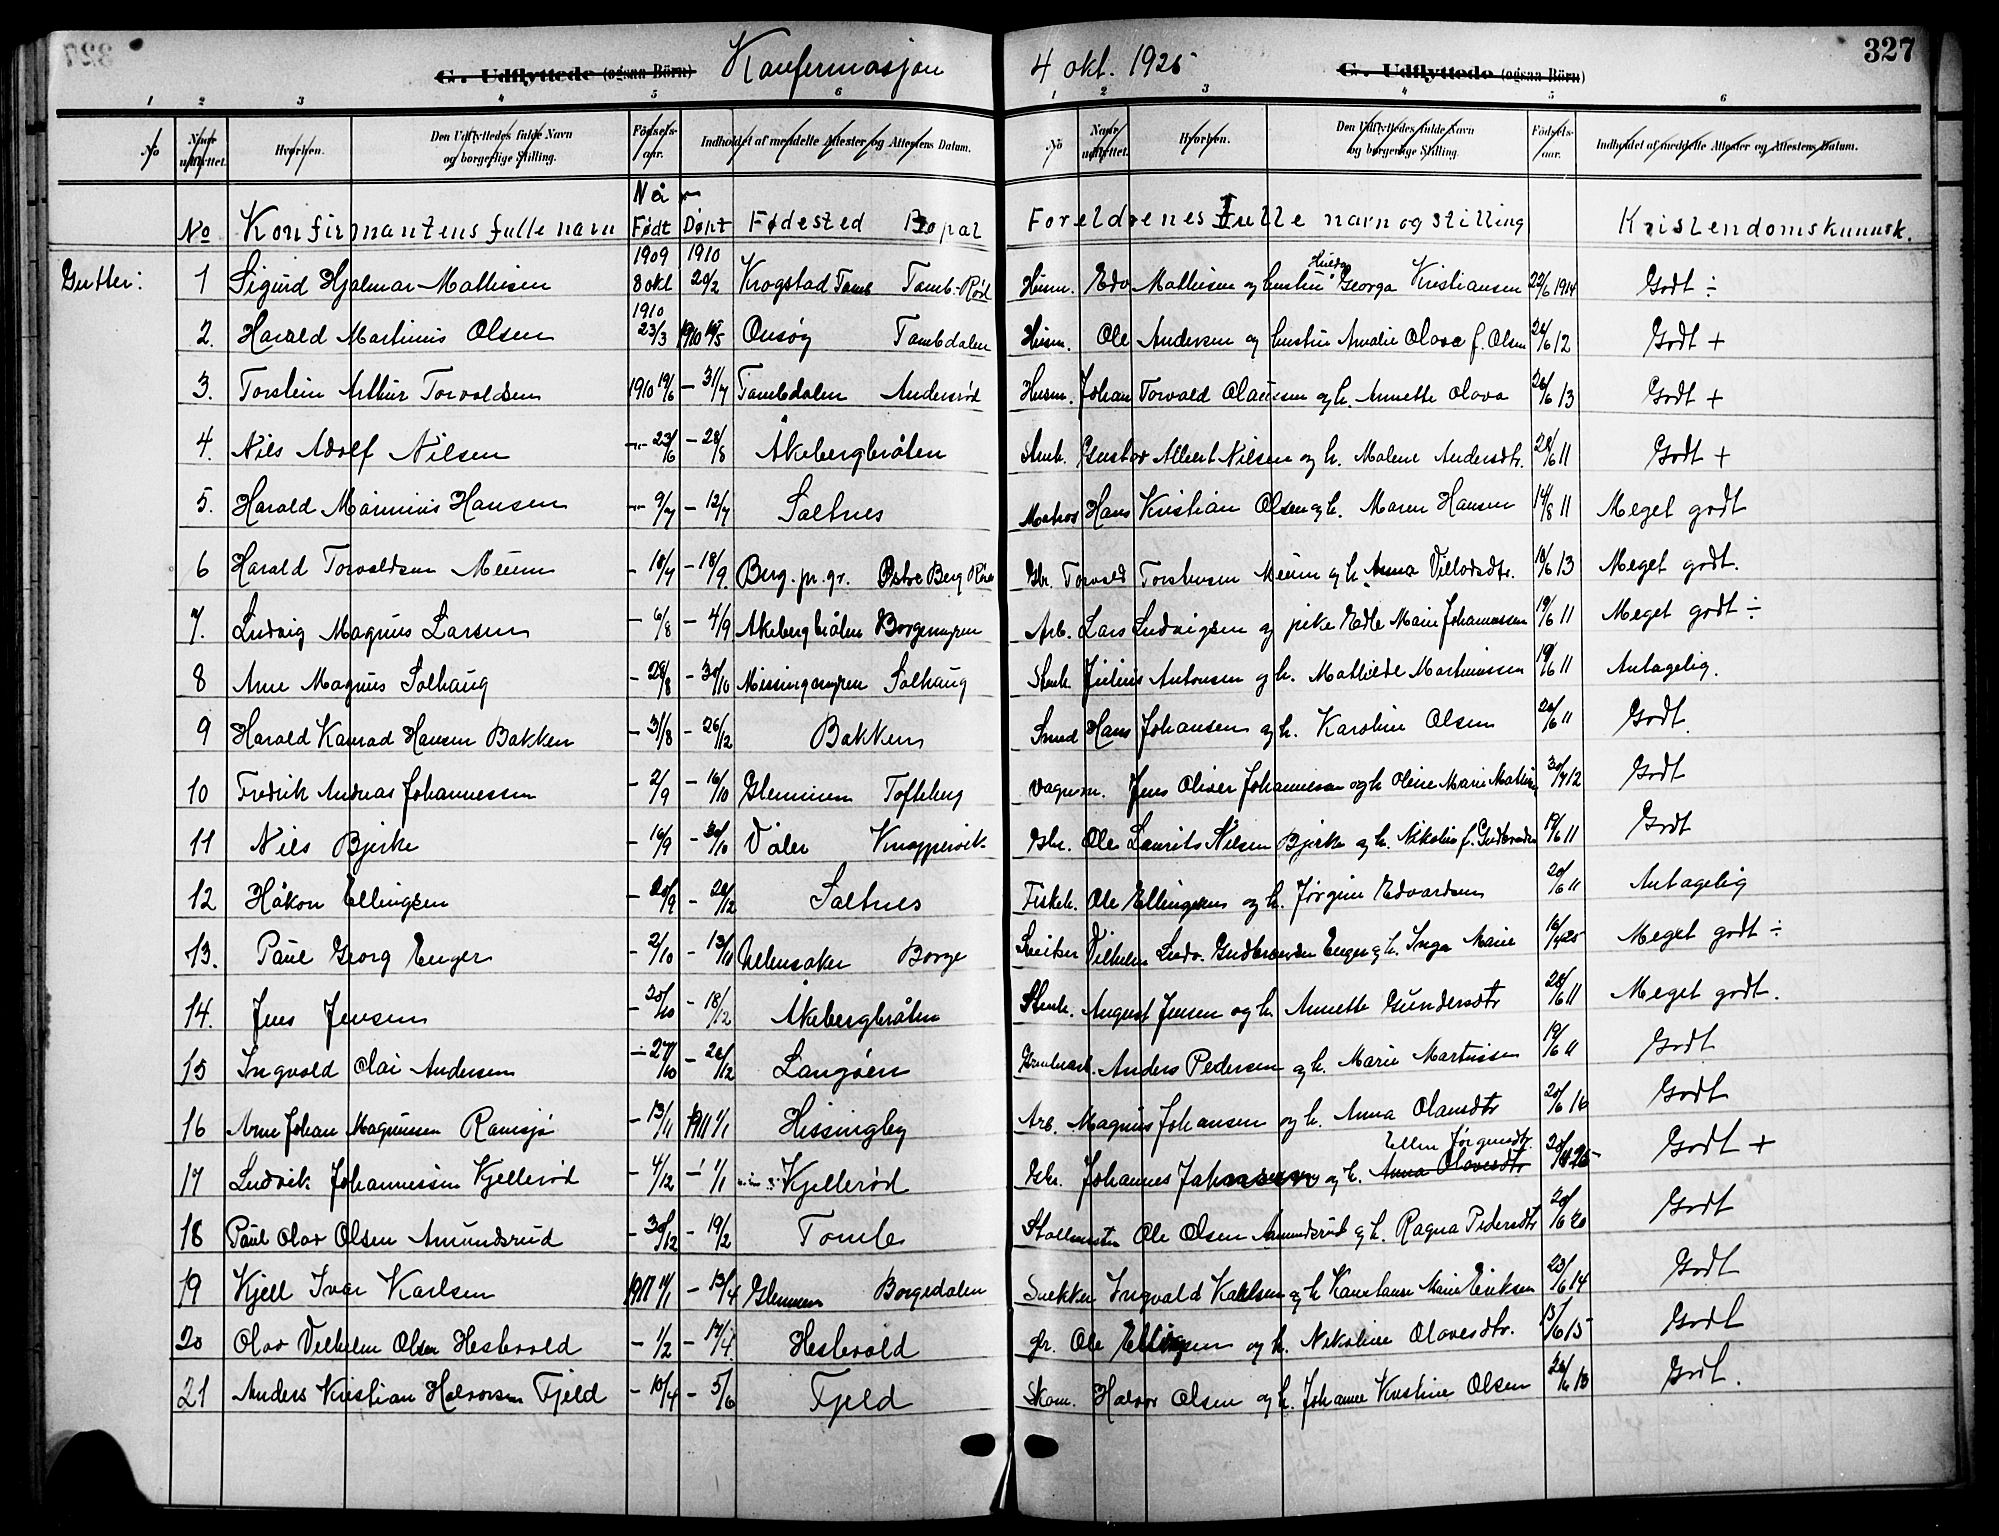 327
G. Udflyttede (ogsaa Börn) Konfermasjon 4 okt. 1925 G. Udflyttede (ogsaa Börn)
1 2 3 4 5 6 1 2 3 4 5 6
No Naar udflyttet. Hvorhen. Den Udflyttedes fulde Navn og borgerlige Stilling. Fødselsaar. Indholdet af meddelte Attester og Attestens Datum. No Naar udflyttet. Hvorhen. Den Udflyttedes fulde Navn og borgerlige Stilling. Fødselsaar. Indholdet af meddelte Attester og Attestens Datum.
Når
No Konfirmantens fulle navn Født Døpt Fødested Bopæl Foreldrenes fulle navn og stilling Kristendomskunnsk.
1909 1910
Gutter: 1 Sigurd Hjalmar Mathisen 8 okt 20/2 Krogstad Tomb Tomb-Rød Husm. Edv Mathisen og hustru Hulda Georga Kristiansen 22/6 1914 Godt ÷
1910
2. Harald Martinius Olsen 23/3 1910 15/5 Onsøy Tombdalen Husm. Ole Andersen og hustru Amalie Olava f. Olsen 26/6 12 Godt +
3. Torstein Arthur Torvaldsen 1910 19/6 – 31/7 Tombdalen Andersrød Husm. Johan Torvald Olausen og h. Annette Olava 26/6 13 Godt +
4. Nils Adolf Nilsen – 23/6 – 28/8 Åkebergbråten Stenh. Gustav Albert Nilsen og h. Malene Andersdtr. 28/6 11 Godt +
5. Harald Marinius Hansen – 9/7 – 12/7 Saltnes Matros Hans Kristian Olsen og h. Maren Hansen 14/8 11 Meget godt
6 Harald Torvaldsen Meum – 18/7 – 18/9 Berg. pr. gr. Østre Berg Gbr. Torvald Torstensen Meum og h. Anna Villadsdtr. 18/6 13 Meget godt.
7. Ludvig Magnus Larsen – 6/8 – 4/9 Åkebergbråten Borgemyren Arb. Lars Ludvigsen og pike Edle Marie Johannessen 19/6 11 Meget godt ÷
8 Arne Magnus Solhaug – 28/8 – 30/10 Missingmyren Solhaug Stenh. Julius Antonsen og h. Mathilde Martinussen 19/6 11 Antagelig.
9 Harald Konrad Hansen Bakken – 31/8 – 26/12 Bakken Smed Hans Johansen og h. Karoline Olsen 20/6 11 Godt.
10 Fredrik Andreas Johannessen – 2/9 – 16/10 Glemmen Tofteberg Vognm. Jens Oliver Johannessen og h Oline Marie 30/7 12 Godt
11 Nils Bjerke – 16/9 – 30/10 Våler Knappervik Gbr. Ole Laurits Nilsen Bjerke og h. Nikoline f. Gudbrandsen 19/6 11 Godt
12 Håkon Ellingsen – 20/9 – 26/12 Saltnes Fiskeh. Ole Ellingsen og h. Jørgine Edvardsen 20/6 11 Antagelig
13. Paul Georg Enger – 2/10 – 13/11 Ullensaker Borge Sveitser Vilhelm Ludv. Gudbrandsen Enger og h. Inga Marie 16/4 25 Meget godt ÷
14. Jens Jensen – 20/10 – 18/12 Åkebergbråten Stenh. August Jensen og h. Annette Gundersdtr 28/6 11 Meget godt.
15 Ingvald Olai Andersen – 27/10 – 26/12 Langøen Grubearb. Anders Pedersen og h. Marie Martinsen 19/6 11 Godt
16 Arne Johan Magnussen Ramsjø – 13/11 1911 1/1 Hissingby Arb. Magnus Johansen og h. Anna Olausdtr 20/6 16 Godt
17 Ludvik Johannessen Kjellerød – 4/12 – 1/1 Kjellerød Gbr. Johannes Johansen og h. Anna Olavesdtr Ellen Jørgensdtr. 25 Godt +
18 Paul Olav Olsen Amundsrud – 30/12 – 19/2 Tomb Stallmester Ole Olsen Amundsrud og h. Ragna Pedersdtr 20/6 20 Godt
19 Kjell Ivar Karlsen 1911 14/1 – 13/4 Glemmen Borgedalen Snekker Ingvald Karlsen og h Konstanse Marie Eriksen 23/6 14 Godt
20 Olav Vilhelm Olsen Hestevold – 1/2 – 17/4 Hestevold gr. Ole Ellingsen og h. Nikoline Olavesdtr. 13/6 15 Godt
21 Anders Kristian Halvorsen Fjeld – 10/4 – 5/6 Fjeld Skom. Halvor Olsen og h. Johanne Kristine Olsen 26/6 13 Godt.